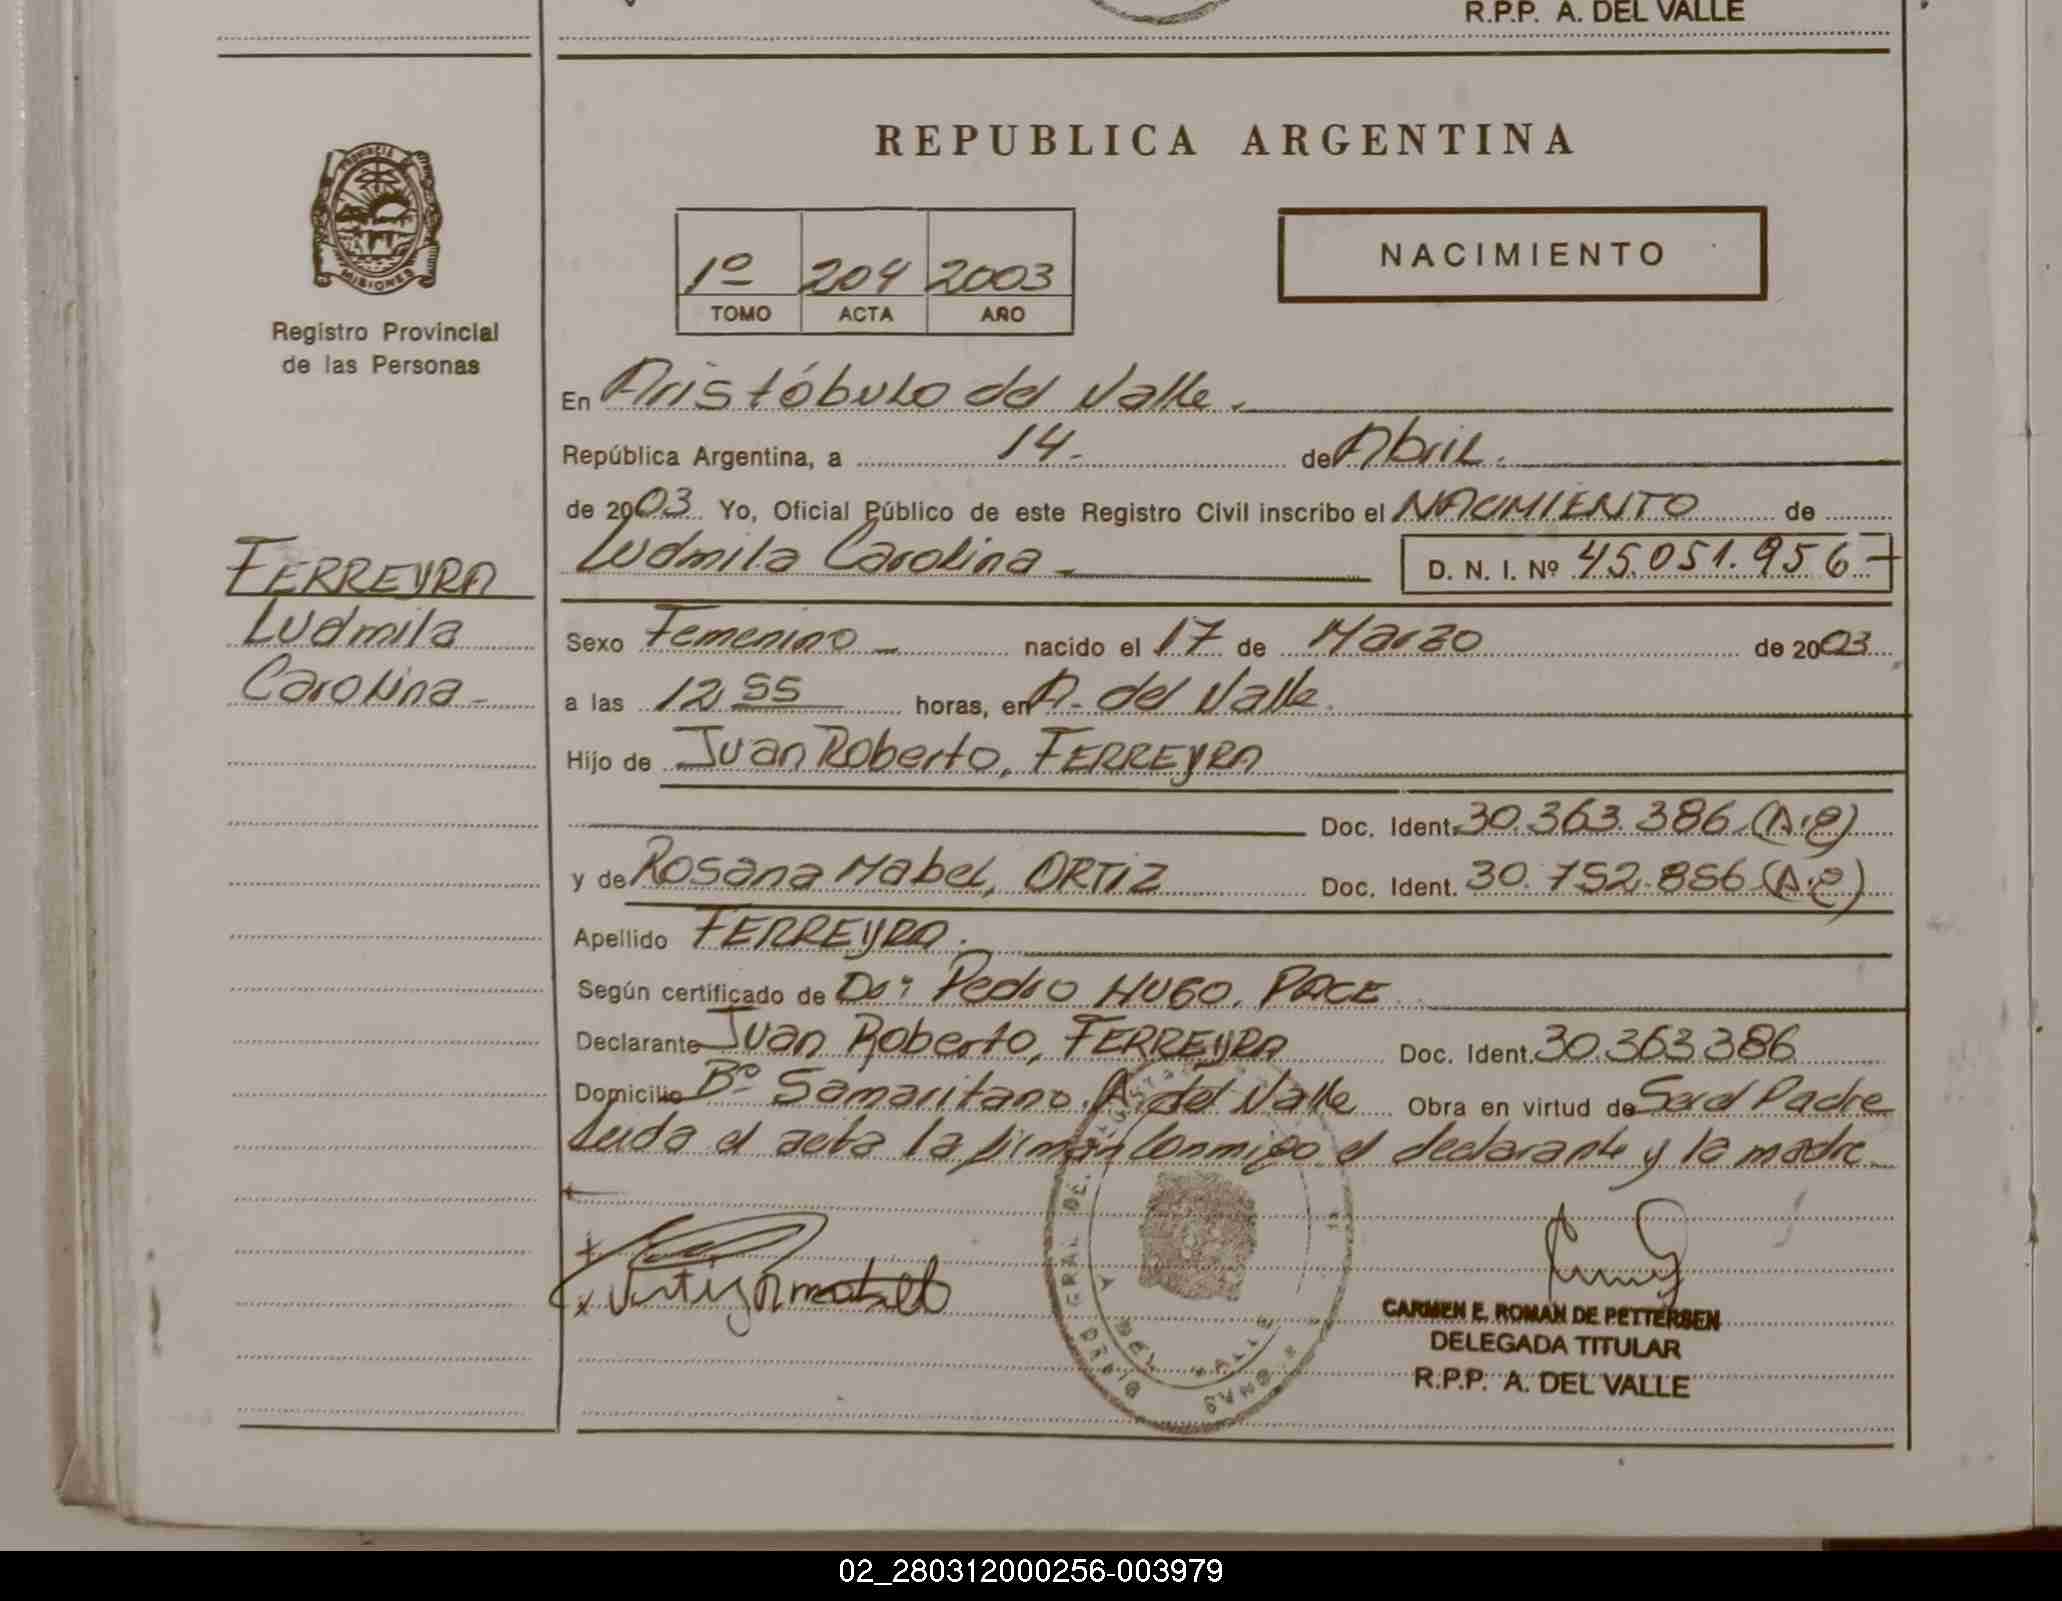 R.P.P. A. DEL VALLE
PROVINCIA
MISIONES
Registro Provincial
de las Personas
REPUBLICA ARGENTINA
1º 204 2003
TOMO ACTA AÑO
NACIMIENTO
En Aristóbulo del Valle.
República Argentina, a 14- de Abril.
de 2003 Yo, Oficial Público de este Registro Civil inscribo el NACIMIENTO de
Ludmila Carolina - D. N. I. Nº 45.051.956-
FERREYRA
Ludmila
Carolina -
Sexo Femenino - nacido el 17 de Marzo de 2003
a las 12,55 horas, en A. del Valle.
Hijo de Juan Roberto, FERREYRA
Doc. Ident. 30.363.386 (A.e)
y de Rosana Mabel, ORTIZ Doc. Ident. 30.752.856 (A.e)
Apellido FERREYRA.
Según certificado de Dr: Pedro HUGO, PACE
Declarante Juan Roberto, FERREYRA Doc. Ident. 30.363.386
Domicilio Bº Samaritano. A. del Valle Obra en virtud de Ser el Padre
Leida el acta la firman conmigo el declarante y la madre
GRAL DE
A DEL VALLE
CARMEN E. ROMAN DE PETTERSEN
DELEGADA TITULAR
R.P.P. A. DEL VALLE
02_280312000256-003979